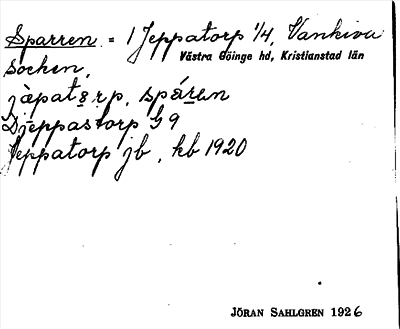 Sparren = 1 Jeppatorp 1/4, Vankiva
Västra Göinge hd, Kristianstad län
socken,
jàpatsrp, spáren
Djeppastorp G 9
Jeppatorp jb, kb 1920
JÖRAN SAHLGREN 1926